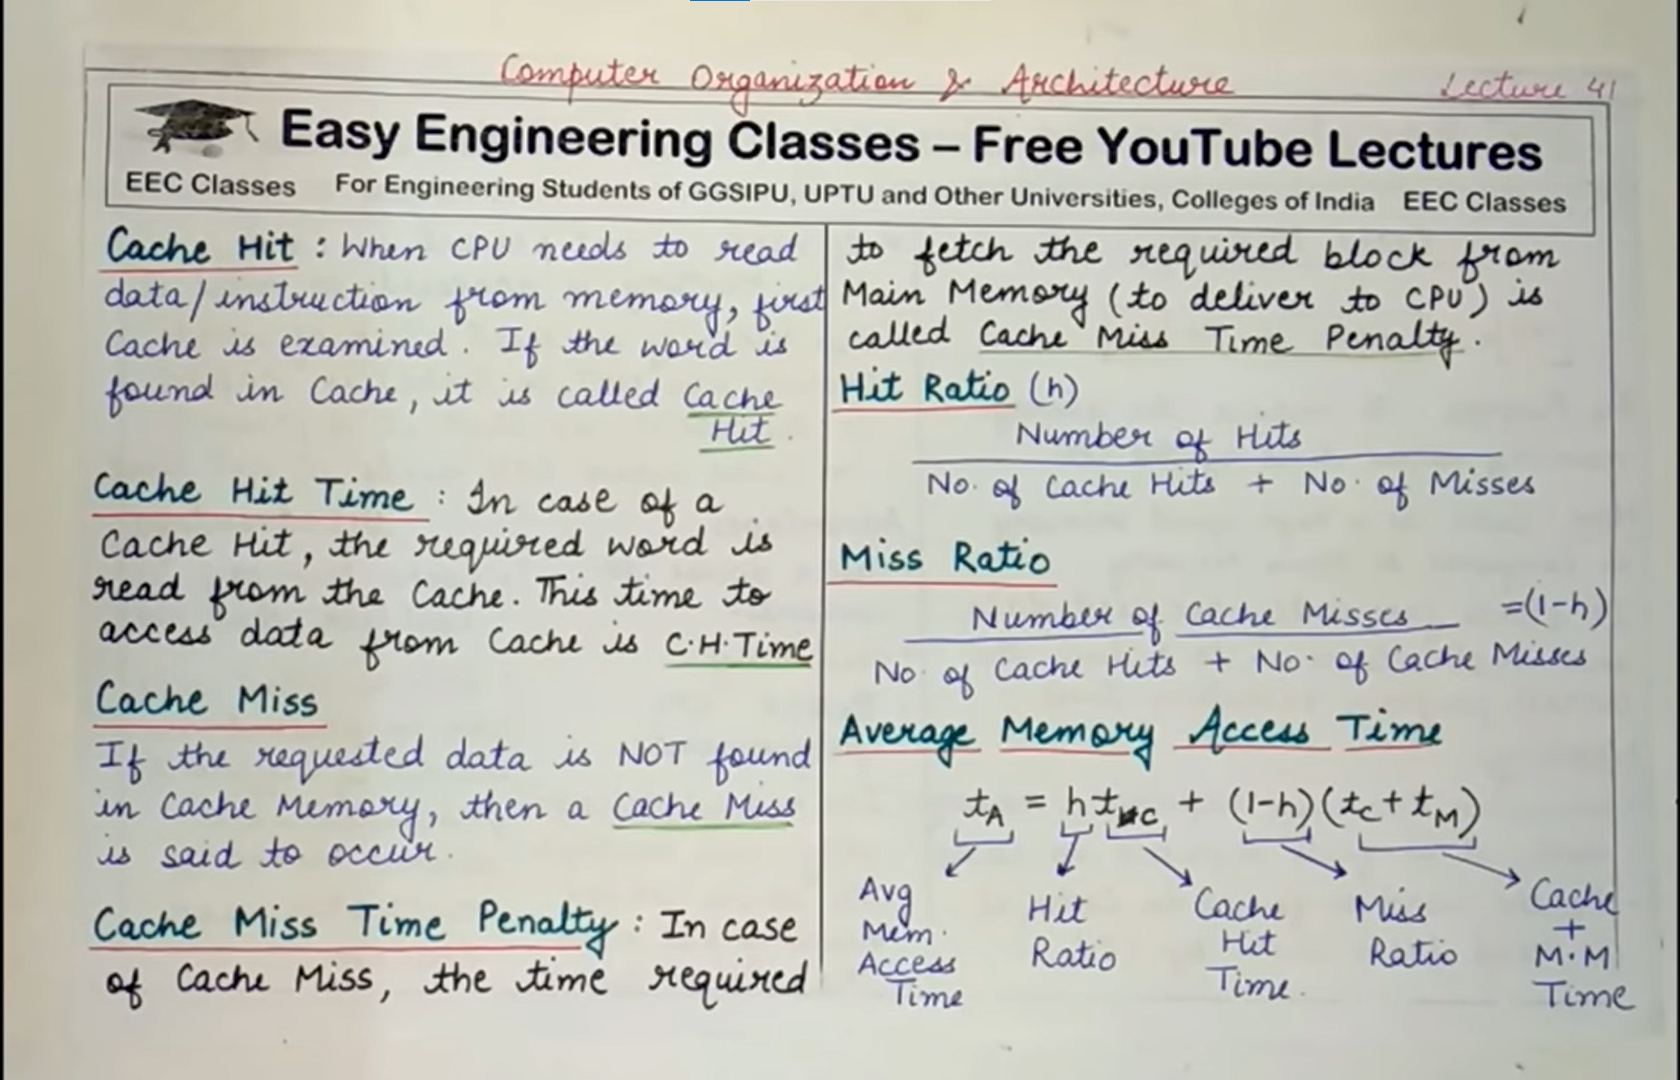 Computer Organization & Architecture Lecture 41
Easy Engineering Classes – Free YouTube Lectures
EEC Classes For Engineering Students of GGSIPU, UPTU and Other Universities, Colleges of India EEC Classes
Cache Hit : When CPU needs to read
data/instruction from memory, first
Cache is examined. If the word is
found in Cache, it is called Cache
Hit.
Cache Hit Time : In case of a
Cache Hit, the required word is
read from the Cache. This time to
access data from Cache is C.H.Time
Cache Miss
If the requested data is NOT found
in Cache Memory, then a Cache Miss
is said to occur.
Cache Miss Time Penalty : In case
of Cache Miss, the time required
to fetch the required block from
Main Memory (to deliver to CPU) is
called Cache Miss Time Penalty.
Hit Ratio (h)
Number of Hits
No. of Cache Hits + No. of Misses
Miss Ratio
Number of Cache Misses =(1-h)
No. of Cache Hits + No. of Cache Misses
Average Memory Access Time
tA = h tC + (1-h)(tC + tM)
Avg
Mem.
Access
Time
Hit
Ratio
Cache
Hit
Time.
Miss
Ratio
Cache
+
M.M
Time